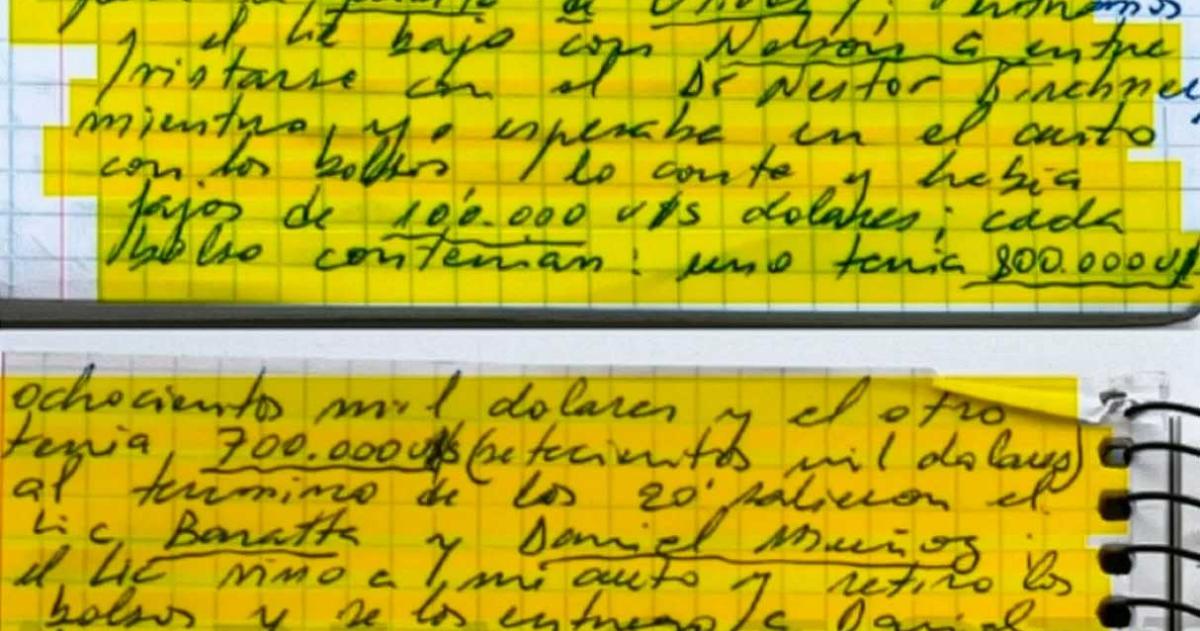 y el Lic bajo con Nelson a entre
/vistarse con el Dr Nestor Kirchner
mientras, yo esperaba en el auto
con los bolsos / lo conte y habia
fajos de 100.000 u/s dolares; cada
bolso contenian: uno tenia 800.000 u/s
ochocientos mil dolares y el otro
tenia 700.000 u/s (setecientos mil dolares)
al termino de los 20' salieron el
Lic Baratta y Daniel Muñoz
el Lic vino a mi auto y retiro los
bolsos y se los entrego a Daniel